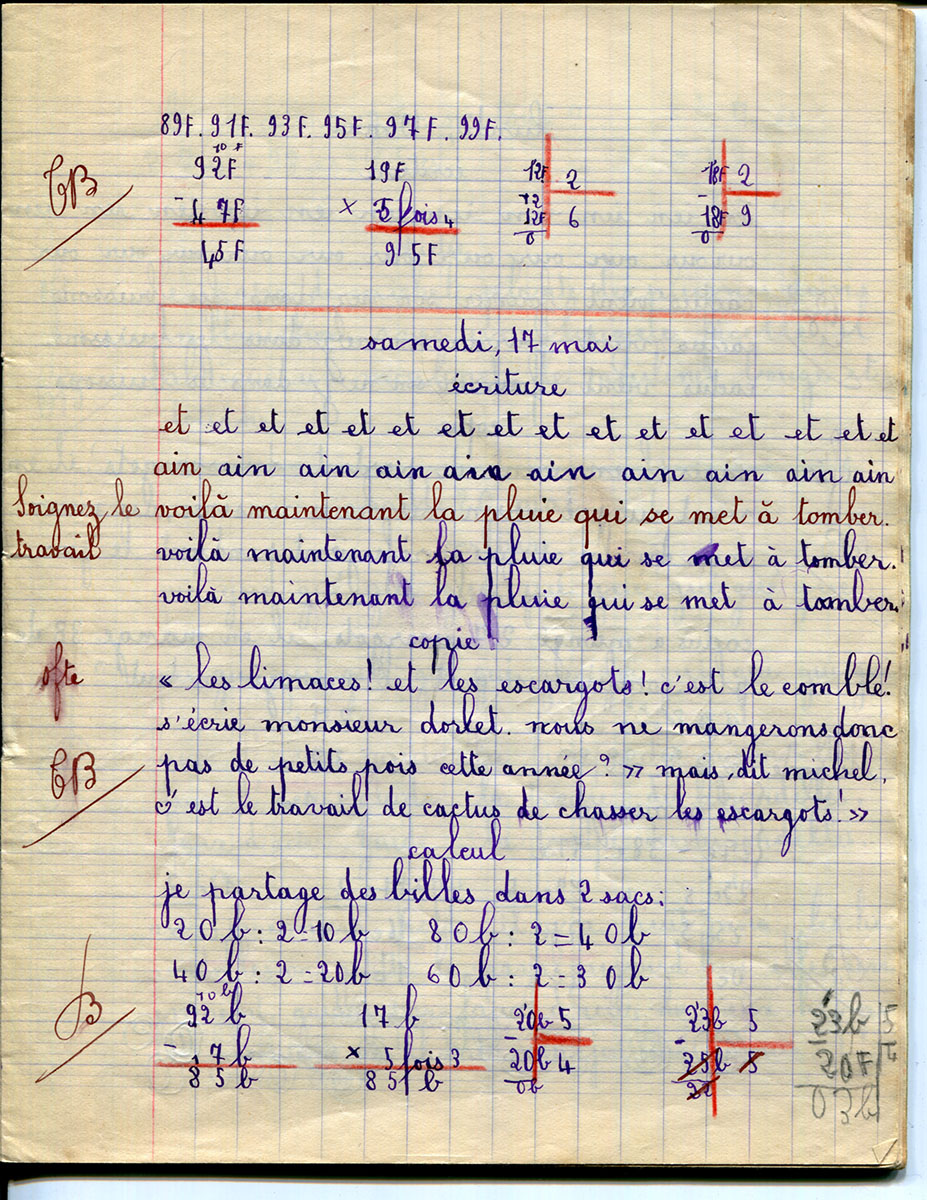 89F. 91F. 93F. 95F. 97F. 99F.
TB
10 F
92F 19F 12F 2 18F 2
- 47F × 5 fois 4 12F 6 - 18F 9
45F 95F 0 0
samedi, 17 mai
écriture
et et et et et et et et et et et et et et et et
ain ain ain ain ain ain ain ain ain ain
Soignez le voilà maintenant la pluie qui se met à tomber.
travail voilà maintenant la pluie qui se met à tomber.
voilà maintenant la pluie qui se met à tomber.
copie
« les limaces! et les escargots! c'est le comble!
s'écrie monsieur dorlet. nous ne mangerons donc
TB pas de petits pois cette année? » mais, dit michel,
c'est le travail de cactus de chasser les escargots! »
calcul
je partage des billes dans 2 sacs:
20b : 2=10b 80b : 2=40b
40b : 2=20b 60b : 2=30b
B
10 b
92b 17b 20b 5 23b 5 23b 5
- 7b × 5 fois 3 - 20b 4 - 25b 5 - 20F
85b 85b 0b 03b